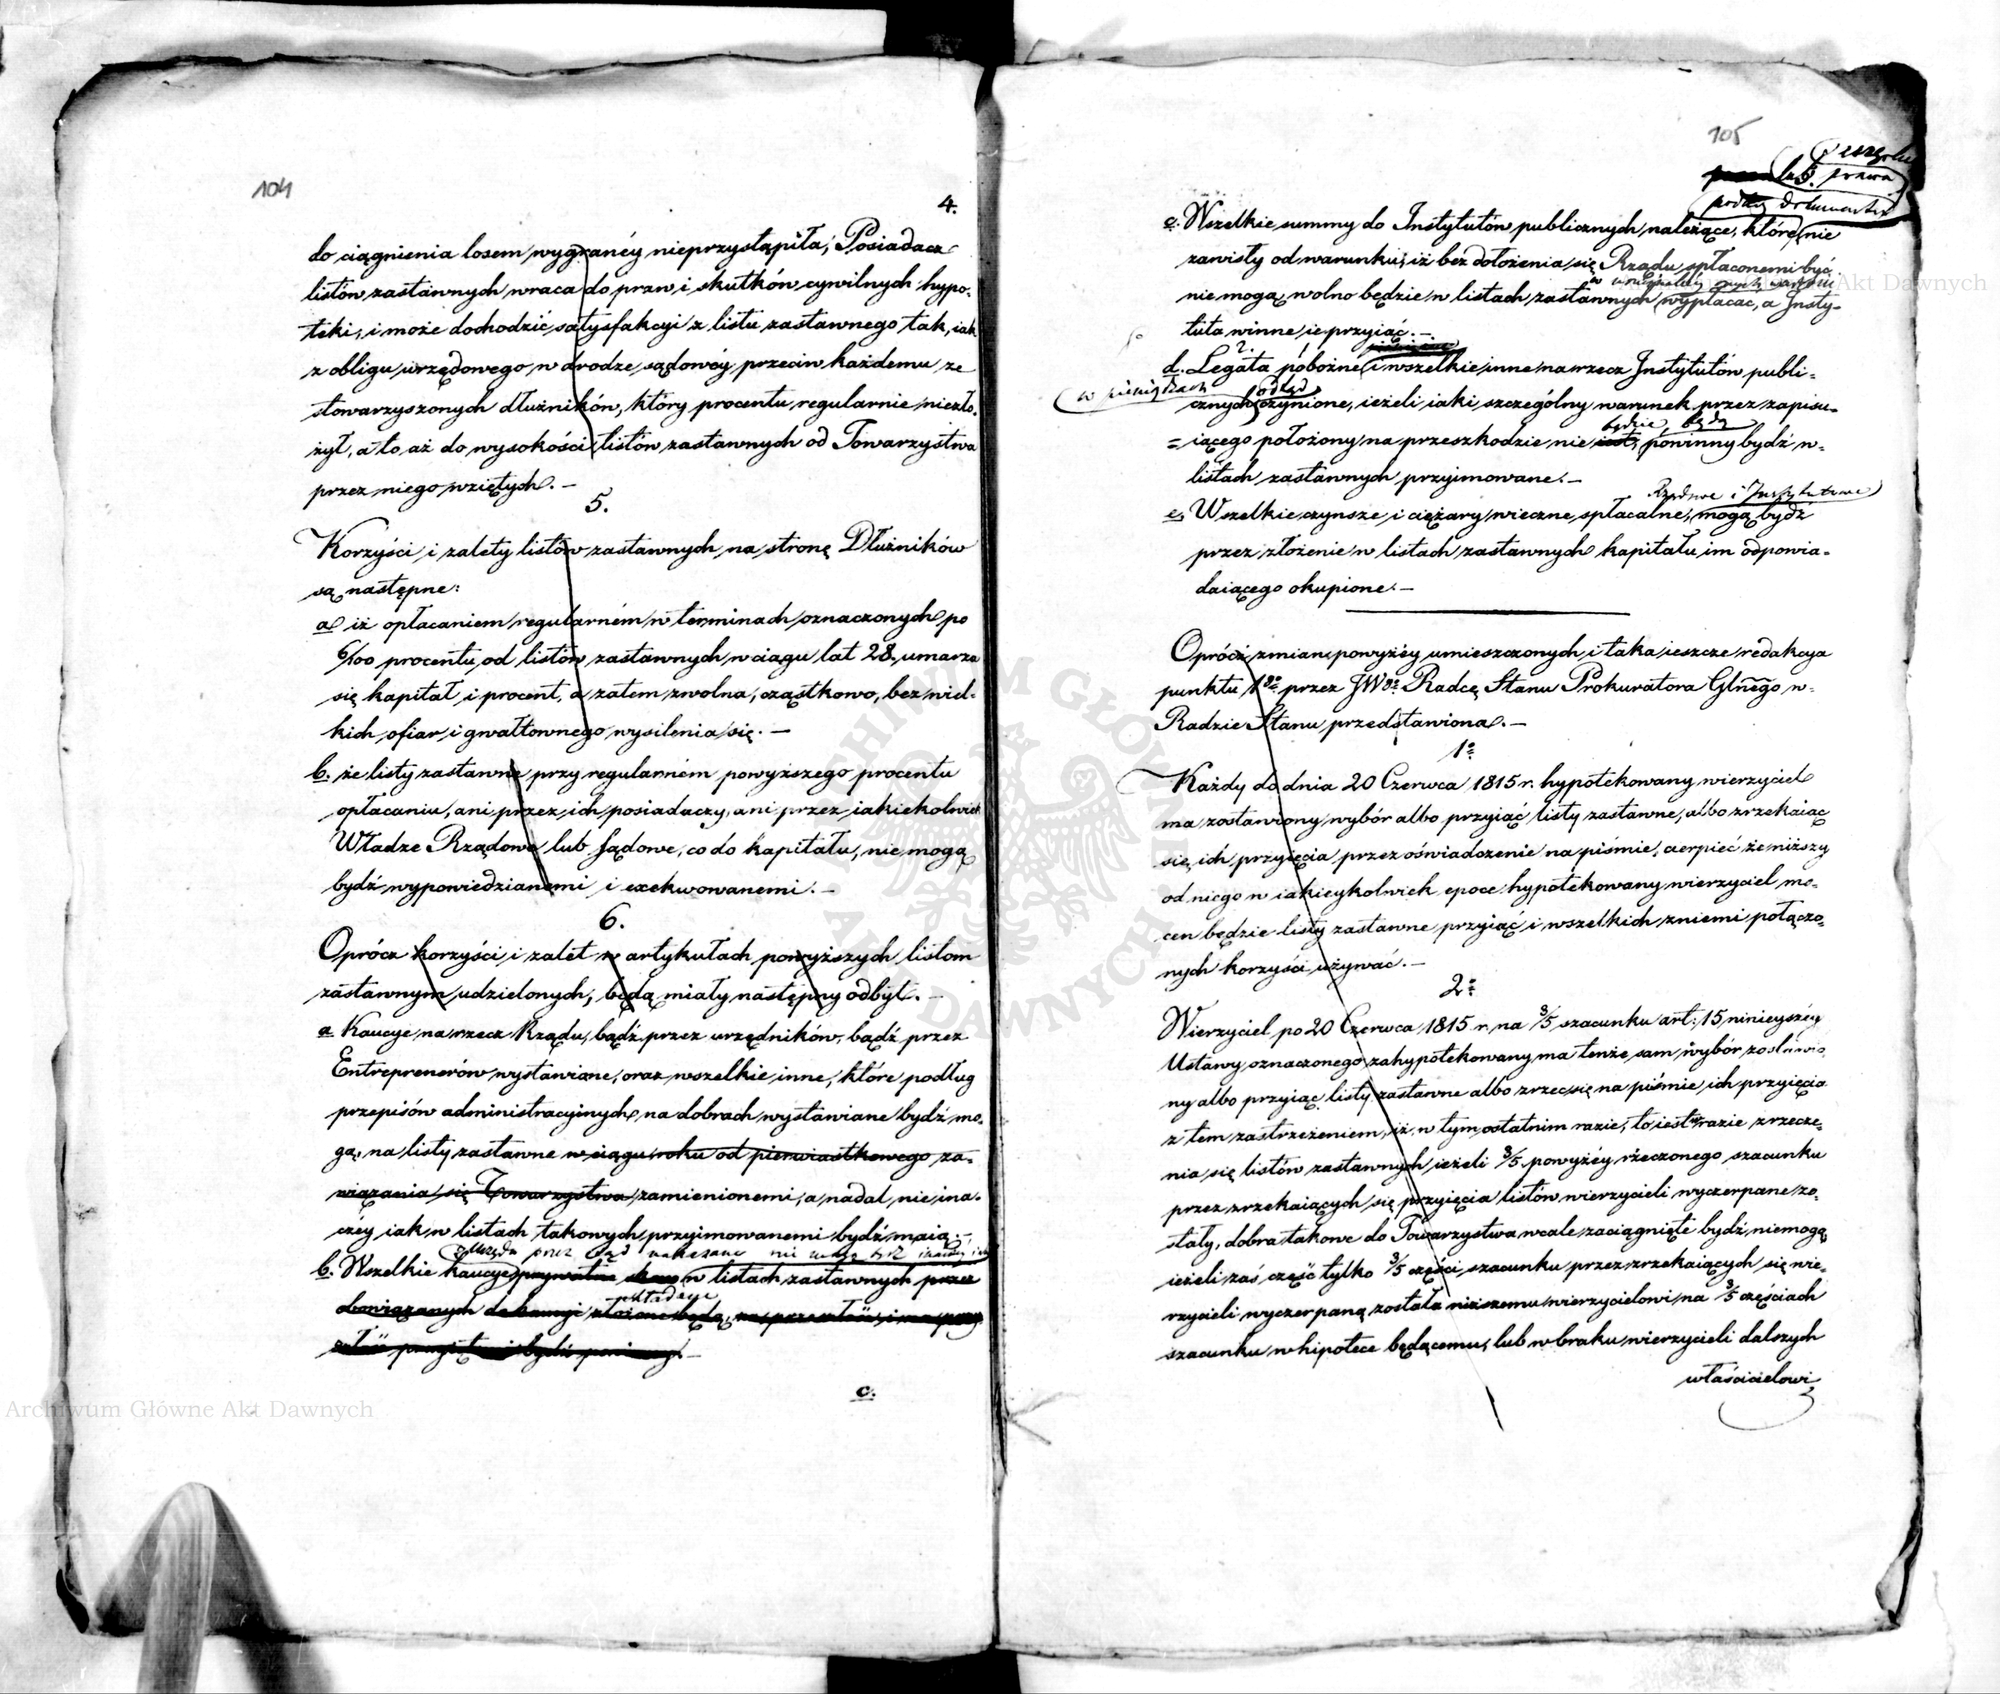 104
4.
do ciągnienia losem wygranéy nieprzystąpiła, Posiadacz
listów zastawnych wraca do praw i skutków cywilnych hypo-
teki, i może dochodzić satysfakcyi z listu zastawnego tak, iak
z obligu urzędowego w drodze sądowéy przeciw każdemu ze
stowarzyszonych dłużników, który procentu regularnie niezło-
żył, a to aż do wysokości listów zastawnych od Towarzystwa
przez niego wziętych. –
5.
Korzyści i zalety listów zastawnych na stronę Dłużników
są następne:
a iż opłacaniem regularném w terminach oznaczonych po
6/100 procentu od listów zastawnych w ciągu lat 28. umarza
się kapitał i procent, a zatem zwolna, cząstkowo, bez wiel-
kich ofiar i gwałtownego wysilenia się. –
b. że listy zastawne przy regularném powyższego procentu
opłacaniu, ani przez ich posiadaczy, ani przez iakiekolwiek
Władze Rządowe lub Sądowe, co do kapitału, nie mogą
bydź wypowiedzianemi i exekwowanemi. –
6.
Oprócz korzyści i zalet w artykułach powyższych listom
zastawnym udzielonych, będą miały następny odbyt. –
a Kaucye na rzecz Rządu, bądź przez urzędników, bądź przez
Entreprenerów wystawiane, oraz wszelkie inne, które podług
przepisów administracyjnych na dobrach wystawiane bydź mo-
gą, na listy zastawne w ciągu roku od pierwiastkowego za-
wiązania się Towarzystwa zamienionemi, a nadal nie ina-
czéy iak w listach takowych przyjmowanemi bydź maią. –
z Urzędu przez Sąd nakazane nie mogą bydź
b. Wszelkie kaucye prywatne w listach zastawnych przez
składane
obowiązanych do kaucyi złożone będą,
przyjętemi bydź powinny. –
c.
105
lub prawa
podług dokumentu
c. Wszelkie summy do Instytutów publicznych należące, które nie
zawisły od warunku, iż bez dołożenia się Rządu spłaconemi być
nie mogą, wolno będzie w listach zastawnych wypłacać, a Insty-
tuta winne ie przyiąć. –
d. Legata pobożne i wszelkie inne na rzecz Instytutów publi-
w pieniędzach
odtąd
cznych czynione, ieżeli iaki szczególny warunek przez zapisu-
będzie, będą
= iącego położony na przeszkodzie nie iest, powinny bydź w
listach zastawnych przyjmowane. –
Rządowe i Instytutowe
e, Wszelkie czynsze i ciężary wieczne spłacalne, mogą bydź
przez złożenie w listach zastawnych kapitału im odpowia-
daiącego okupione. –
Oprócz zmian powyżéy umieszczonych i taka ieszcze redakcya
punktu 1go przez JWgo Radcę Stanu Prokuratora Glnego w
Radzie Stanu przedstawiona. –
1o
Każdy do dnia 20 Czerwca 1815 r. hypotekowany wierzyciel
ma zostawiony wybór albo przyiąć listy zastawne, albo zrzekaiąc
się ich przyięcia przez oświadczenie na piśmie, cierpieć że niższy
od niego w iakieykolwiek epoce hypotekowany wierzyciel mo-
cen będzie listy zastawne przyiąć i wszelkich z niemi połączo-
nych korzyści używać. –
2o
Wierzyciel po 20 Czerwca 1815 r. na 3/5 szacunku art: 15 ninieyszéy
Ustawy oznaczonego zahypotekowany ma tenże sam wybór zostawio
ny albo przyiąć listy zastawne albo zrzec się na piśmie ich przyięcia
z tem zastrzeżeniem, iż w tym ostatnim razie, to iest w razie zrzecze-
nia się listów zastawnych ieżeli 3/5 powyżéy rzeczonego szacunku
przez zrzekaiących się przyięcia listów wierzycieli wyczerpane zo-
stały, dobra takowe do Towarzystwa wcale zaciągnięte bydź niemogą,
ieżeli zaś część tylko 3/5 części szacunku przez zrzekaiących się wie-
rzycieli wyczerpaną została niższemu wierzycielowi na 3/5 częściach
szacunku w hipotece będącemu, lub w braku wierzycieli dalszych
właścicielowi
Archiwum Główne Akt Dawnych